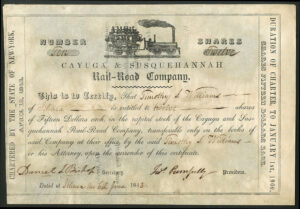 NUMBER
SHARES
Twelve
CAYUGA & SUSQUEHANNAH
Rail-Road Company.
This is to Certify, That Timothy S. Williams
of Ithaca is entitled to twelve shares
of Fifteen Dollars each, in the capital stock of the Cayuga and Sus-
quehannah Rail-Road Company, transferable only on the books of
said Company at their office by the said Timothy S. Williams
or his Attorney, upon the surrender of this certificate.
Secretary
President.
Dated at Ithaca June 1843
CHARTERED BY THE STATE OF NEW-YORK,
DURATION OF CHARTER TO JANUARY 1st, 1900.
SHARES FIFTEEN DOLLARS EACH.